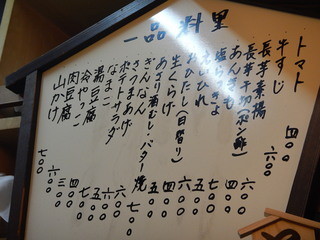 一品料里
トマト 四〇〇
牛すじ 六〇〇
長芋素揚 六〇〇
長芋千切(ポン酢) 四〇〇
あんきも 七〇〇
塩らっきょ 五〇〇
えいひれ 六〇〇
おひたし(日替り) 四〇〇
生くらげ 五〇〇
あさり酒むし・バター焼 七〇〇
ぎんなん 六〇〇
さつまあげ 六〇〇
ポテトサラダ 五〇〇
なまこ 七〇〇
湯豆腐 四〇〇
冷やっこ 三〇〇
肉豆腐 六〇〇
山かけ 七〇〇